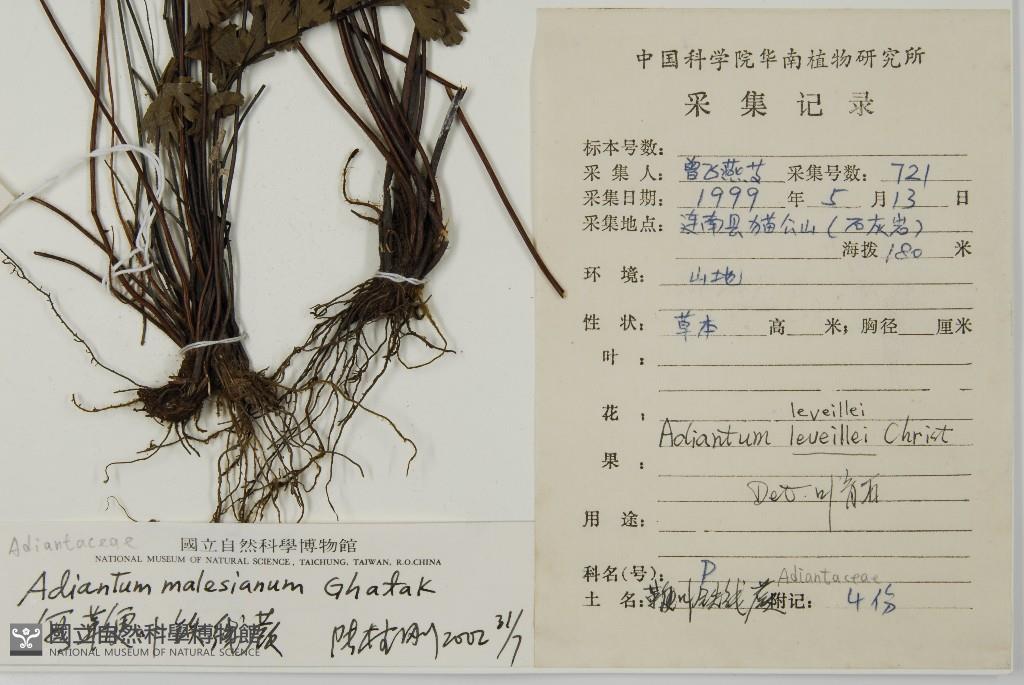 中国科学院华南植物研究所
采集记录
标本号数：
采集人：曾飞燕等 采集号数：721
采集日期：1999年5月13日
采集地点：连南县猫公山（石灰岩）
海拨180米
环境：山地
性状：草本 高 米；胸径 厘米
叶：
花：leveillei
Adiantum leveillei Christ
果：
Det. 叶育石
用途：
科名(号)：P Adiantaceae
土名： 铁线蕨 附记：4份
Adiantaceae
國立自然科學博物館
NATIONAL MUSEUM OF NATURAL SCIENCE, TAICHUNG, TAIWAN, R.O.CHINA
Adiantum malesianum Ghatak
2002 31/7
國立自然科學博物館
NATIONAL MUSEUM OF NATURAL SCIENCE